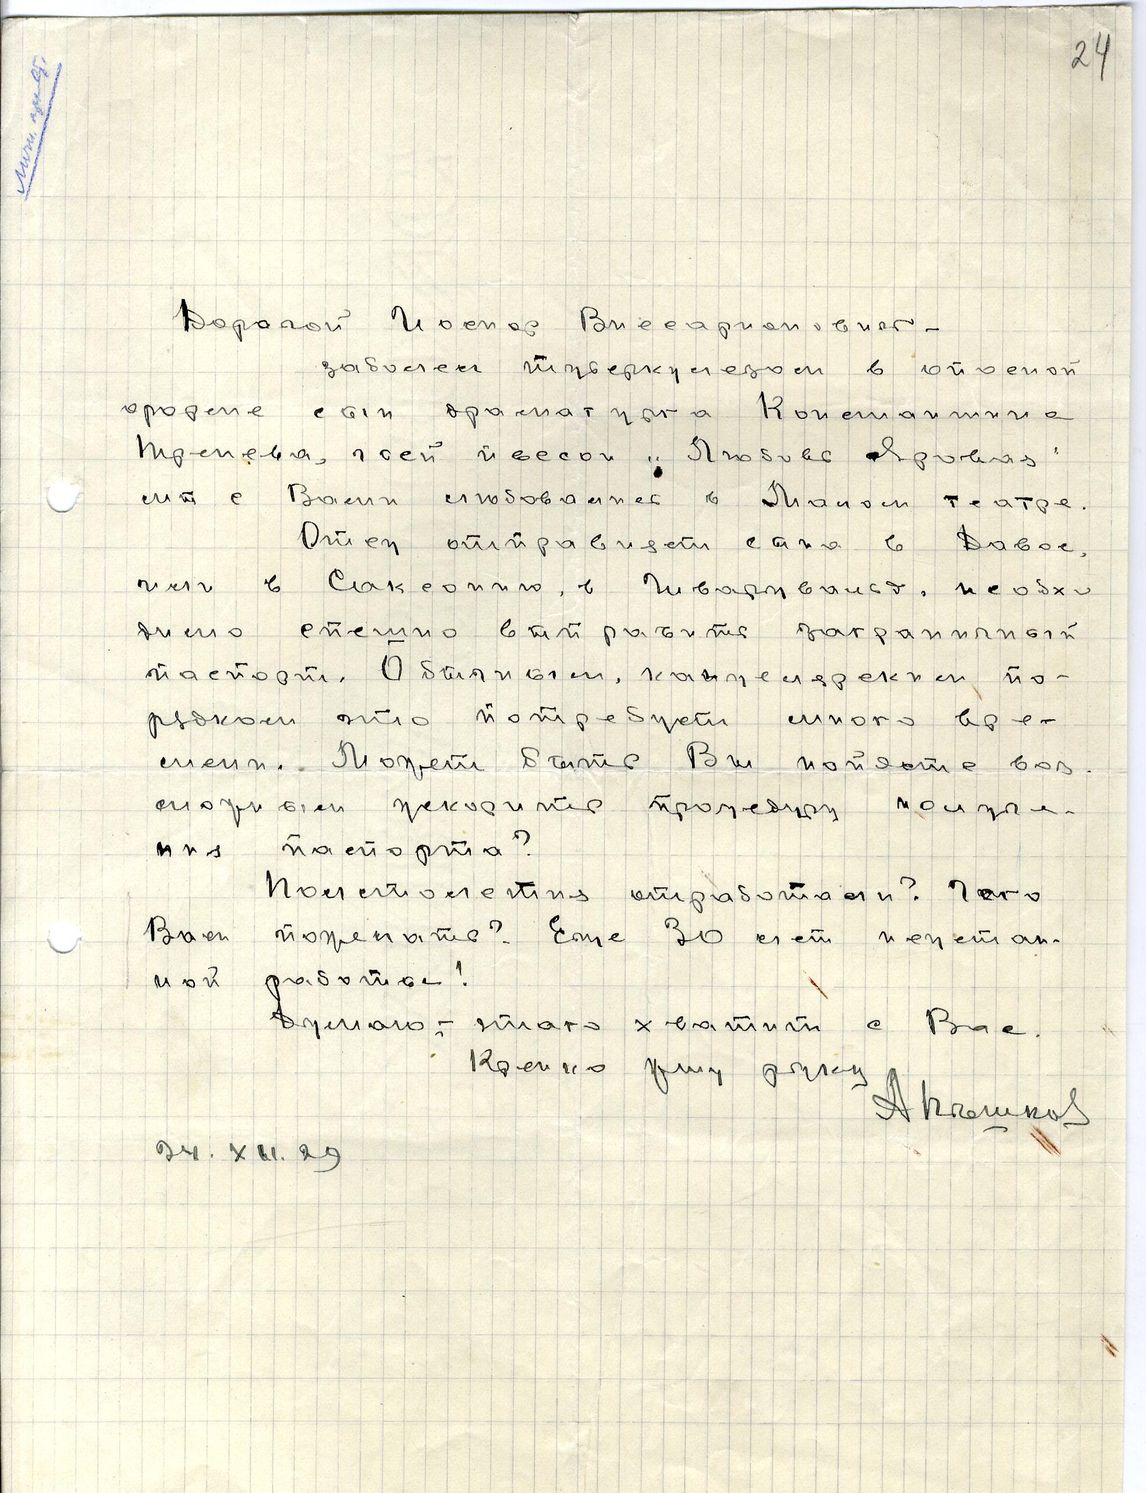 24
Дорогой Иосиф Виссарионович —
заболел туберкулезом в опасной
форме сын драматурга Константина
Тренева, чьей пьесой „Любовь Яровая"
мы с Вами любовались в Малом театре.
Отец отправляет сына в Давос,
или в Саксонию, в Шварцвальд, необхо
димо спешно выправить заграничный
паспорт. Обычным, канцелярским по-
рядком это потребует много вре-
мени. Может быть Вы найдете воз-
можным ускорить процедуру получе-
ния паспорта?
Полстолетия отработали? Чего
Вам пожелать? Еще 30 лет неустан-
ной работы!
Думаю,— этого хватит с Вас.
Крепко жму руку
А Пешков
24. XII. 29